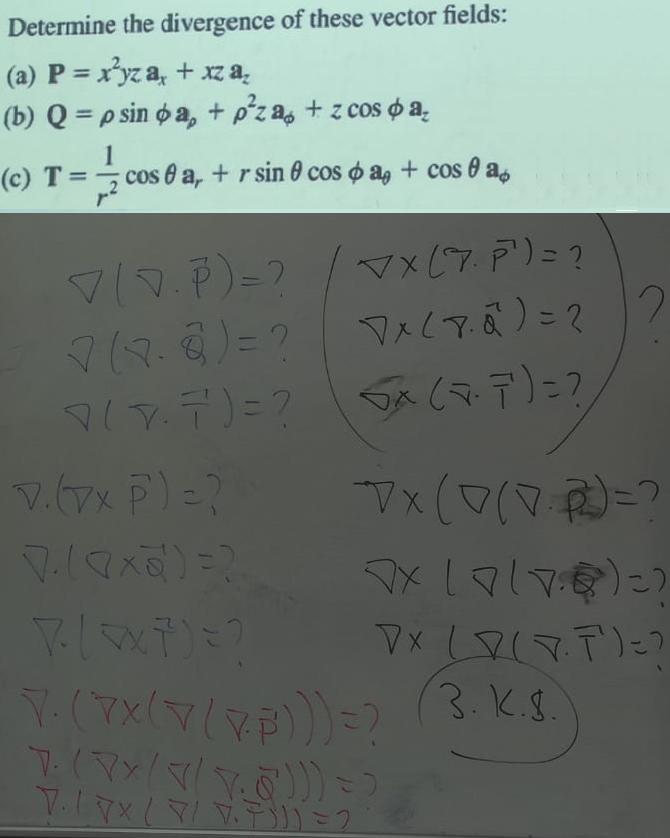 Determine the divergence of these vector fields:
(a) P = x²yz aₓ + xz a_z
(b) Q = ρ sin ϕ a_ρ + ρ²z a_ϕ + z cos ϕ a_z
(c) T = 1/r² cos θ a_r + r sin θ cos ϕ a_θ + cos θ a_ϕ
∇(∇.P⃗)=?
∇(∇.Q⃗)=?
∇(∇.T⃗)=?
(∇×(∇.P⃗)=?
∇×(∇.Q⃗)=?
∇×(∇.T⃗)=?) ?
∇.(∇×P⃗)=?
∇.(∇×Q⃗)=?
∇.(∇×T⃗)=?
∇×(∇(∇.P⃗)=?
∇×(∇(∇.Q⃗)=?
∇×(∇(∇.T⃗)=?
3.K.S.
∇.(∇×(∇(∇.P⃗)))=?
∇.(∇×(∇(∇.Q⃗)))=?
∇.(∇×(∇(∇.T⃗)))=?